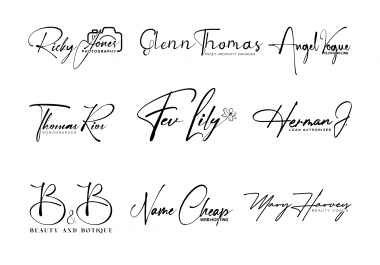 Ricky Jones
PHOTOGRAPHY
Glenn Thomas
ASSET PROPERTY MANAGER
Angel Vogue
CLOTHING LINE
Thomas Rios
SONOGRAPHER
Fev Lily
Herman J.
LOAN AUTHORIZER
B&B
BEAUTY AND BOTIQUE
Name Cheap
WEB HOSTING
Mary Harvey
BEAUTY COACH